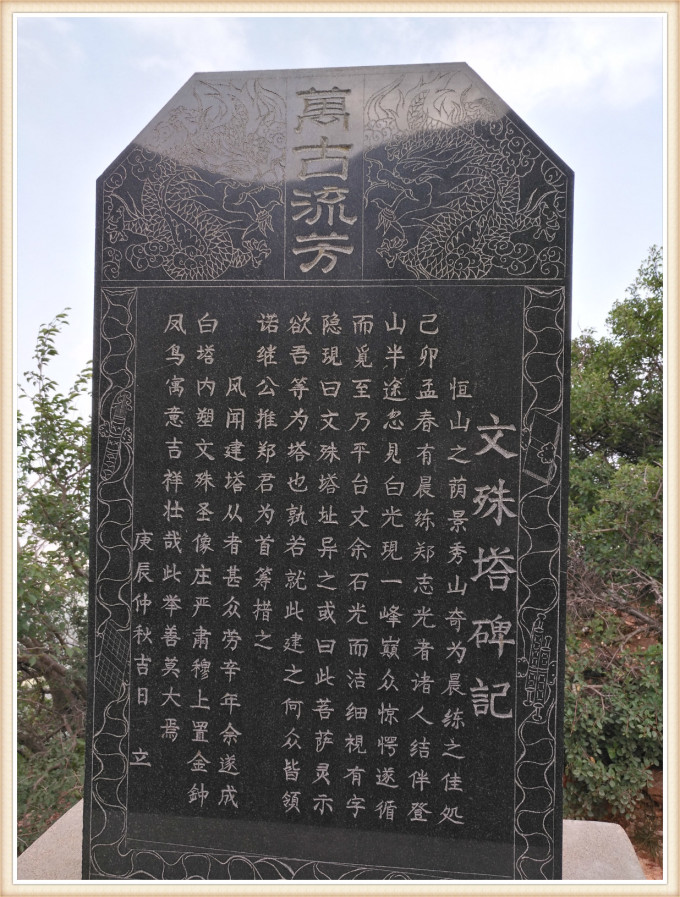 萬古流芳
文殊塔碑記
恒山之荫景秀山奇为晨练之佳処
己卯孟春有晨练郑志光者诸人结伴登
山半途忽見白光現一峰巅众惊愕遂循
而覓至乃平台丈余石光而洁细視有字
隐現曰文殊塔址异之或曰此菩萨灵示
欲吾等为塔也孰若就此建之何众皆領
诺继公推郑君为首筹措之
风闻建塔从者甚众劳辛年余遂成
白塔内塑文殊圣像庄严肃穆上置金鈡
凤鸟寓意吉祥壮哉此举善莫大焉
庚辰仲秋吉日 立